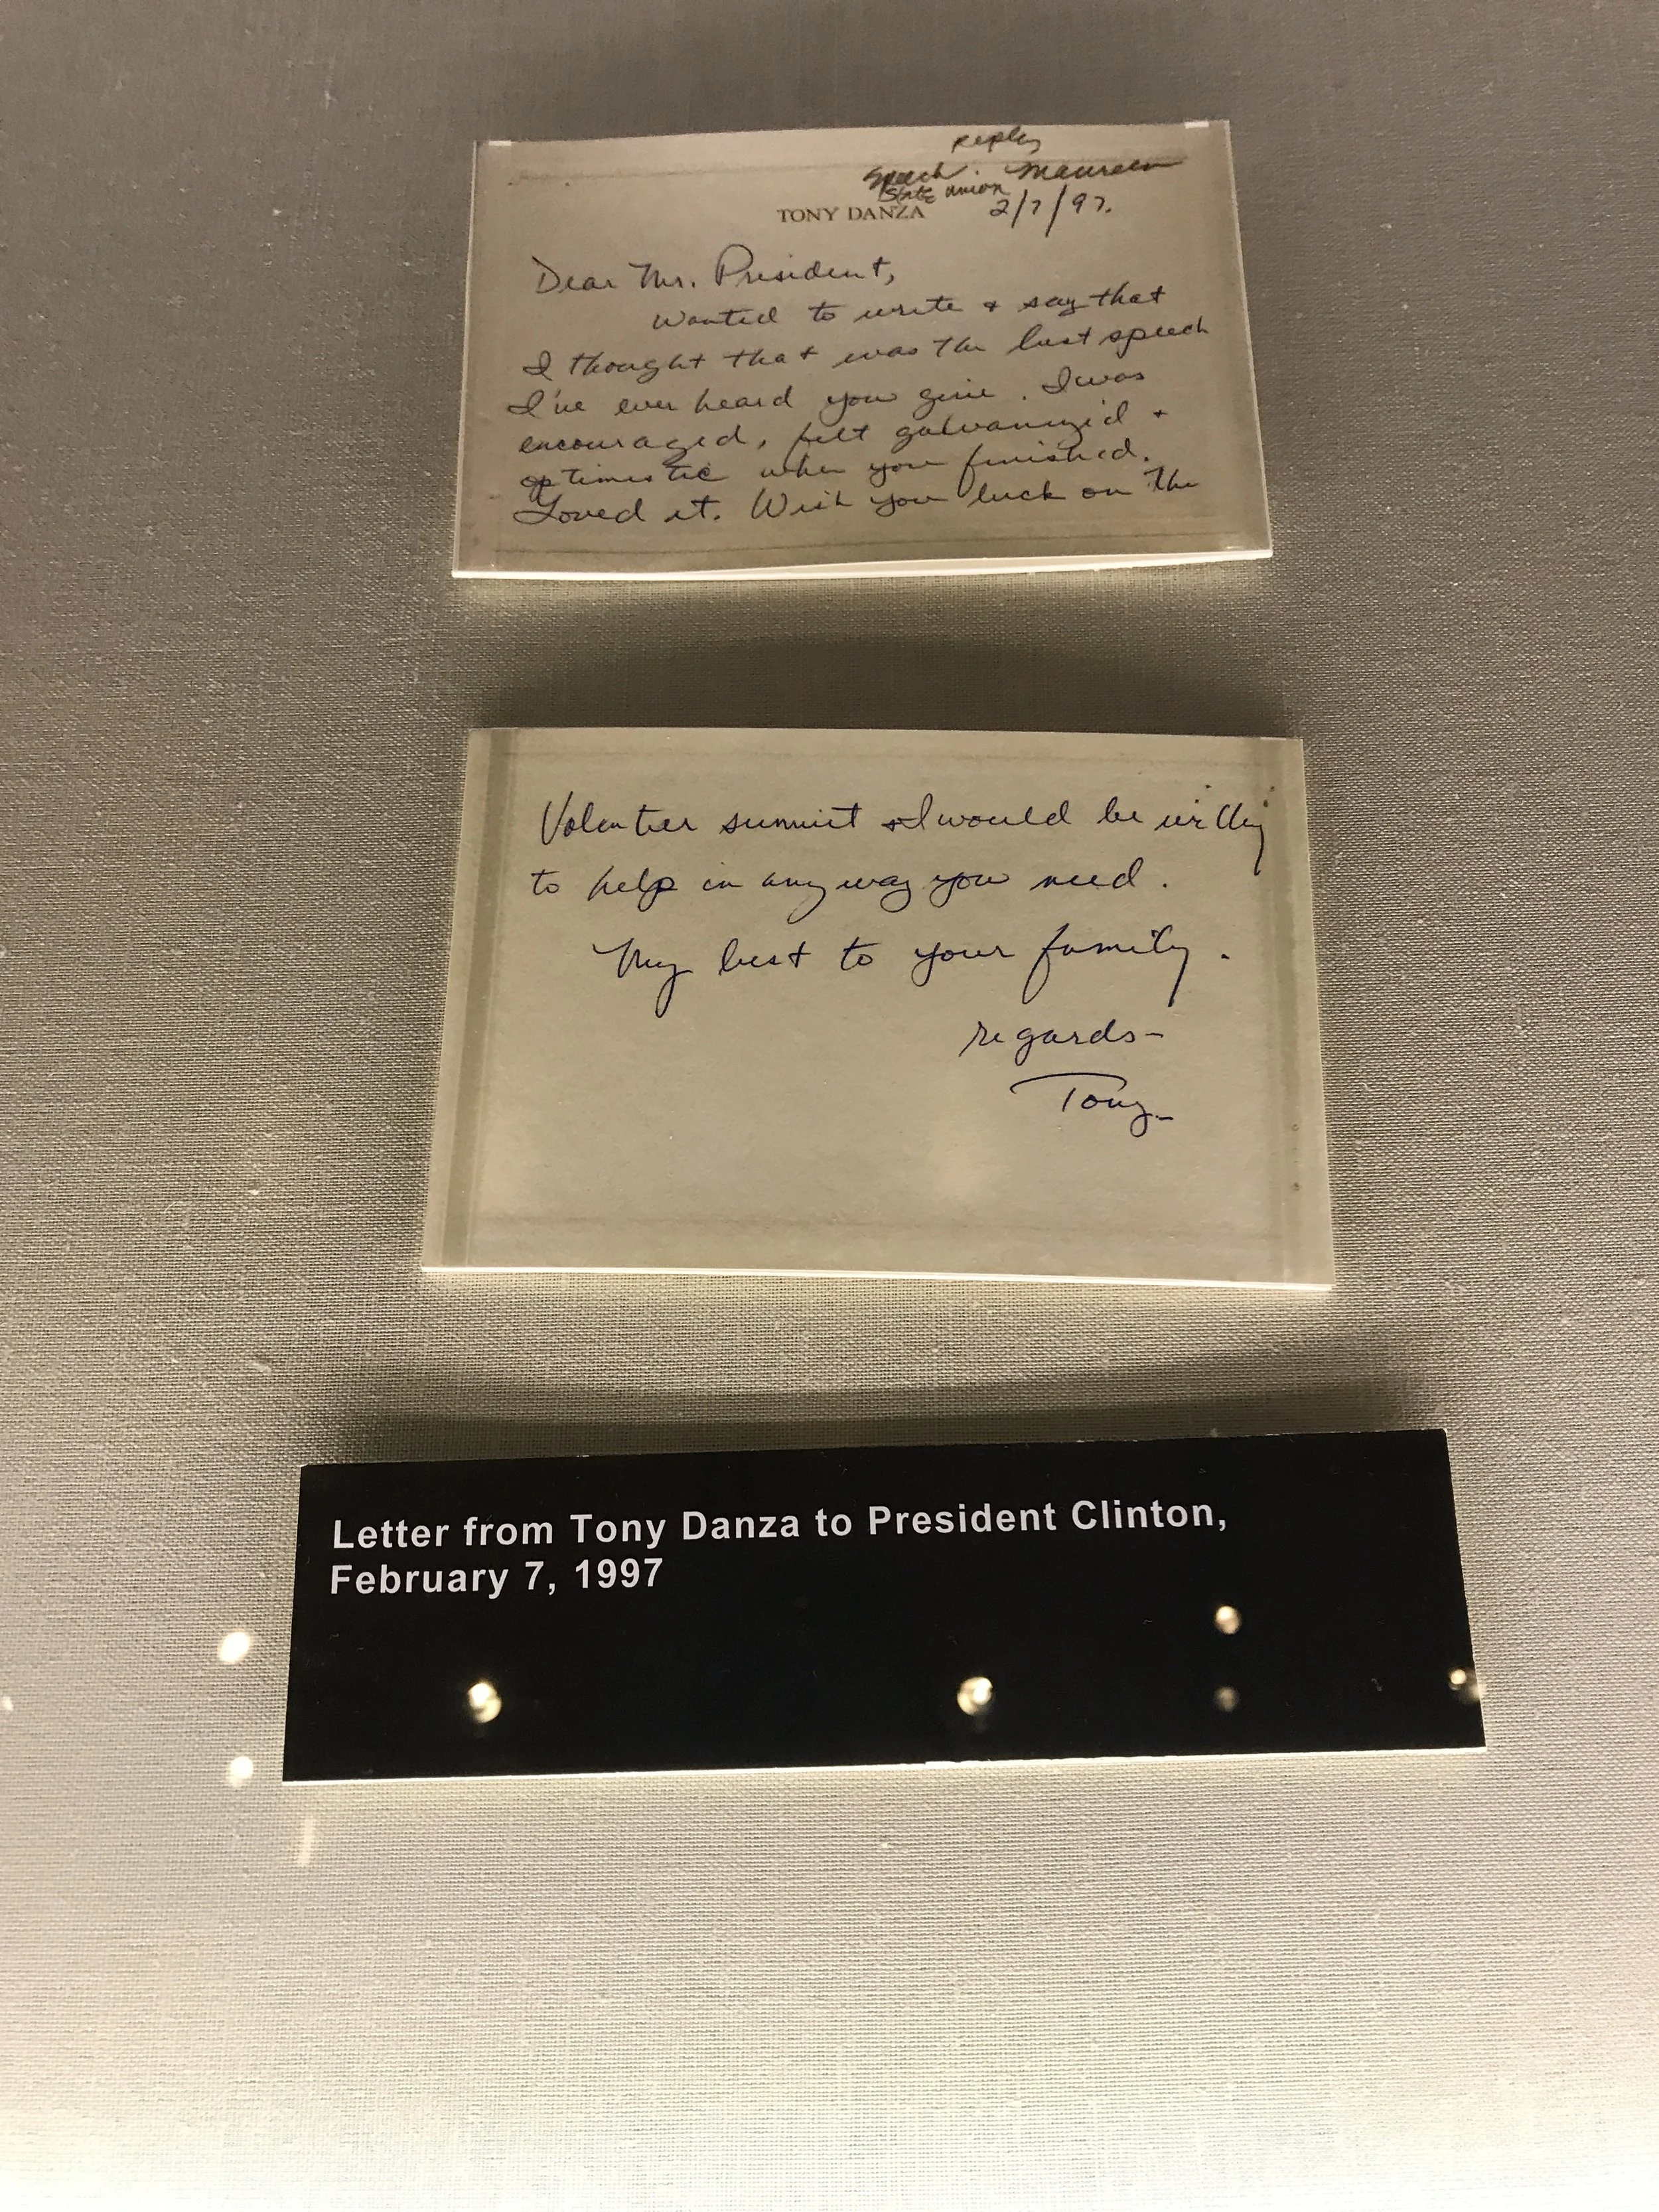 reply
Speech. Maureen
State union
TONY DANZA 2/7/97.
Dear Mr. President,
Wanted to write & say that
I thought that was the best speech
I've ever heard you give. I was
encouraged, felt galvanized &
optimistic when you finished.
Loved it. Wish you luck on the
Volenteer summit & I would be willing
to help in any way you need.
My best to your family.
regards-
Tony-
Letter from Tony Danza to President Clinton,
February 7, 1997